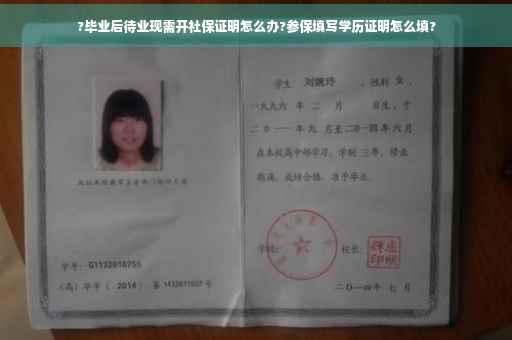 ?毕业后待业现需开社保证明怎么办?参保填写学历证明怎么填?
学生 刘婉玲 ,性别 女 ,
一九九六 年 二 月 日生,于
二〇一一年九 月至二〇一四年六月
在本校高中部学习,学制 三年,修业
期满,成绩合格,准予毕业。
学校: 校长:
二〇一四年 七 月
学号: G1132010755
(高)毕字( 2014 )第 1432011027 号